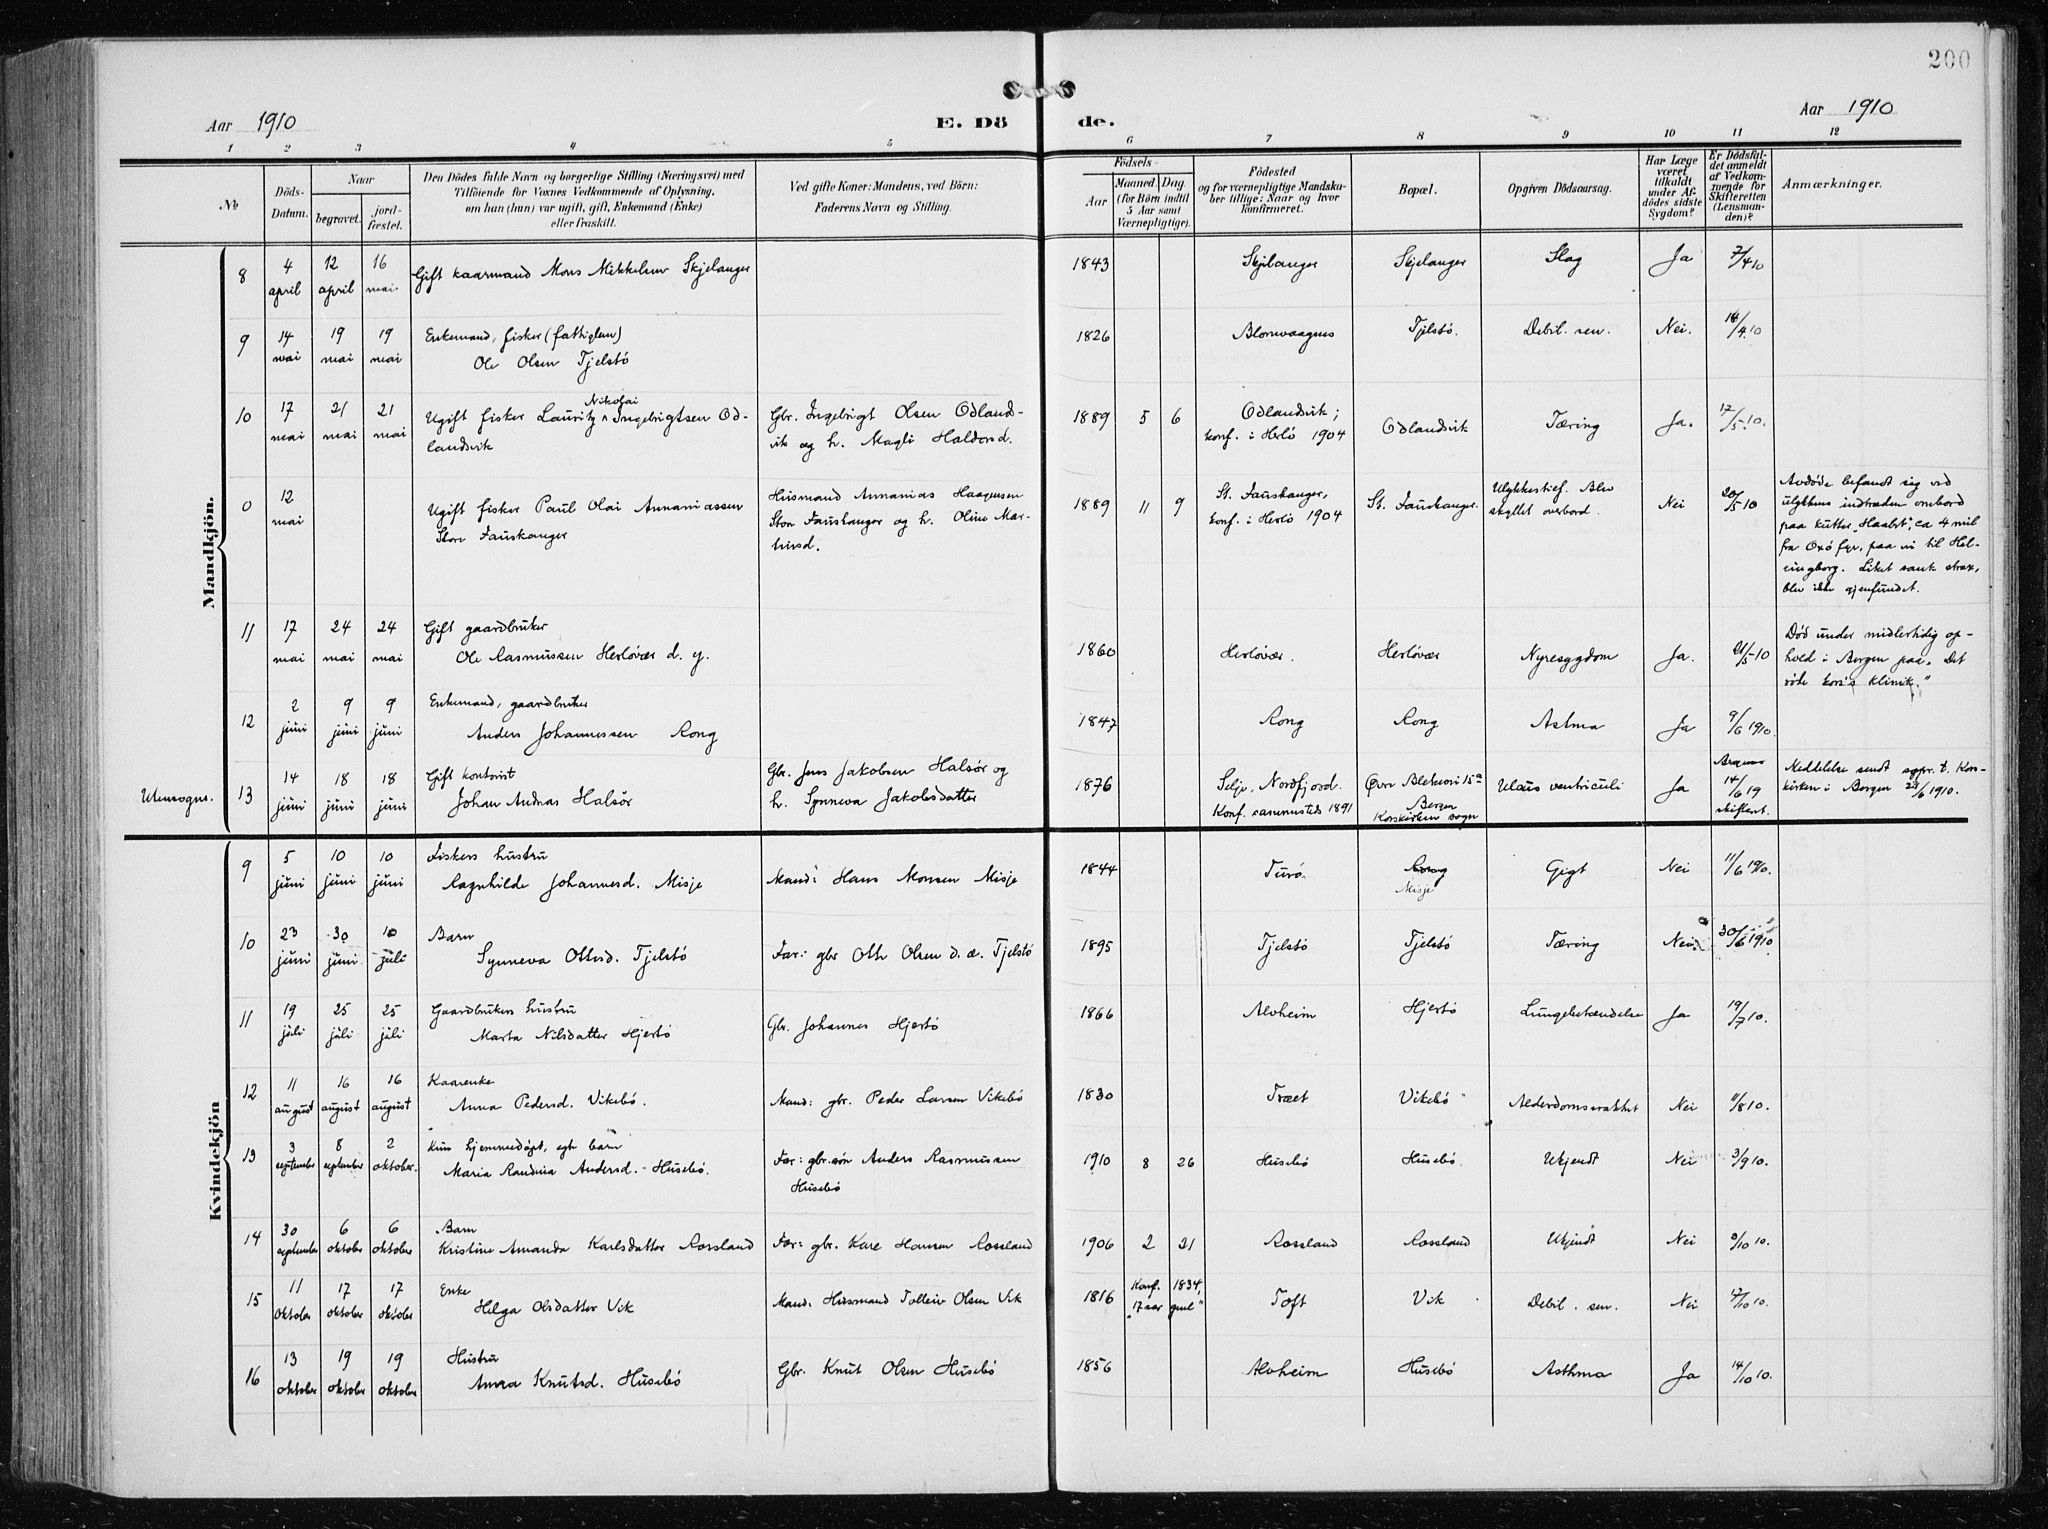 200
Aar 1910
E. Dö
de.
Aar 1910
1 2 3 4 5 6 7 8 9 10 11 12
No
Döds-
Datum.
Naar
begravet.
jord-
fæstet.
Den Dödes fulde Navn og borgerlige Stilling (Næringsvei) med
Tilföiende for Voxnes Vedkommende af Oplysning,
om han (hun) var ugift, gift, Enkemand (Enke)
eller fraskilt.
Ved gifte Koner: Mandens, ved Börn:
Faderens Navn og Stilling.
Födsels-
Aar
Maaned. Dag.
(for Börn indtil
5 Aar samt
Værnepligtige).
Födested
og for værnepligtige Mandska-
ber tillige: Naar og hvor
konfirmeret.
Bopæl.
Opgiven Dödsaarsag.
Har Læge
været
tilkaldt
under Af-
dödes sidste
Sygdom?
Er Dödsfal-
det anmeldt
af Vedkom-
mende for
Skifteretten
(Lensman-
den)?
Anmærkninger.
Mandkjön.
8 4 april 12 april 16 mai Gift kaarmand Mons Mikkelsen Skjelanger 1843 Skjelanger Skjelanger Slag Ja 7/4 10
9 14 mai 19 mai 19 mai Enkemand, fisker (fattiglem)
Ole Olsen Tjelstö 1826 Blomvaagnes Tjelstö. Debil. sen. Nei. 14/4 10
10 17 mai 21 mai 21 mai Ugift fisker Lauritz Nikolai Ingebrigtsen Od-
landsvik Gbr. Ingebrigt Olsen Odlands-
vik og h. Magli Haldorsd. 1889 5 6 Odlandsvik;
konf. i Herlö 1904 Odlandsvik Tæring Ja. 17/5 10.
0 12 mai Ugift fisker Paul Olai Annaniassen
Store Fauskanger Husmand Annanias Haagensen
Store Fauskanger og h. Oline Mar-
tinsd. 1889 11 9 St. Fauskanger,
konf. i Herlö 1904 St. Fauskanger. Ulykkestilf. Blev
skyllet overbord. Nei 20/5 10 Avdöde befandt sig ved
ulykkens indtræden ombord
paa kutter "Haabet", ca 4 mil
fra Oxö fyr, paa vei til Hel-
singborg. Liket sank strax,
blev ikke gjenfundet.
11 17 mai 24 mai 24 mai Gift gaardbruker
Ole Rasmussen Herlövær d. y. 1860 Herlövær. Herlövær Nyresygdom Ja. 21/5-10 Död under midlertidig op-
hold i Bergen paa "Det
röde kors's klinik."
12 2 juni 9 juni 9 juni Enkemand, gaardbruker
Anders Johannessen Rong 1847 Rong Rong Astma Ja 9/6 1910.
Utensogns. 13 14 juni 18 juni 18 juni Gift kontorist
Johan Andreas Halsör Gbr. Jens Jakobsen Halsör og
h. Synneva Jakobsdatter 1876 Selje, Nordfjord.
Konf. sammesteds 1891 Övre Blekevei 15 a
Bergen
Korskirken sogn Ulcus ventriculi Ja 14/6 19
skifteret. Meddelelse sendt sgpr. t. Kors-
kirken i Bergen 23/6 1910.
Kvindekjön
9 5 juni 10 juni 10 juni Fiskers hustru
Ragnhilde Johannesd. Misje Mand: Hans Monsen Misje 1844 Turö Rong
Misje Gigt Nei 11/6 1910.
10 23 juni 30 juni 10 juli Barn
Synneva Ottesd. Tjelstö Far: gbr Otte Olsen d. æ. Tjelstö 1895 Tjelstö Tjelstö Tæring Nei. 30/6 1910
11 19 juli 25 juli 25 juli Gaardbrukers hustru
Marta Nilsdatter Hjertö Gbr. Johannes Hjertö 1866 Alvheim Hjertö Lungebetændelse Ja 19/7 10.
12 11 august 16 august 16 august Kaarenke
Anna Pedersd. Vikebö. Mand: gbr. Peder Larsen Vikebö 1830 Træet Vikebö Alderdomssvakhet Nei 11/8 10.
13 3 september 8 september 2 oktober. Kun hjemmedöpt, egte barn
Maria Randina Andersd. Husebö. Far: gbr.sön Anders Rasmussen
Husebö 1910 8 26 Husebö Husebö. Ukjendt Nei 3/9 10.
14 30 september 6 oktober 6 oktober Barn
Kristine Amanda Karlsdatter Rossland Far: gbr. Kare Hansen Rossland 1906 2 21 Rossland Rossland Ukjendt Nei 3/10 10.
15 11 oktober 17 oktober 17 oktober Enke
Helga Olsdatter Vik Mand: Husmand Tolleiv Olsen Vik 1816 Konf. 1834,
"17 aar gml" Toft Vik Debil. sen. Nei 17/10 10.
16 13 oktober 19 oktober 19 oktober Hustru
Anna Knutsd. Husebö Gbr. Knut Olsen Husebö 1856 Alvheim Husebö Asthma Ja 14/10 10.